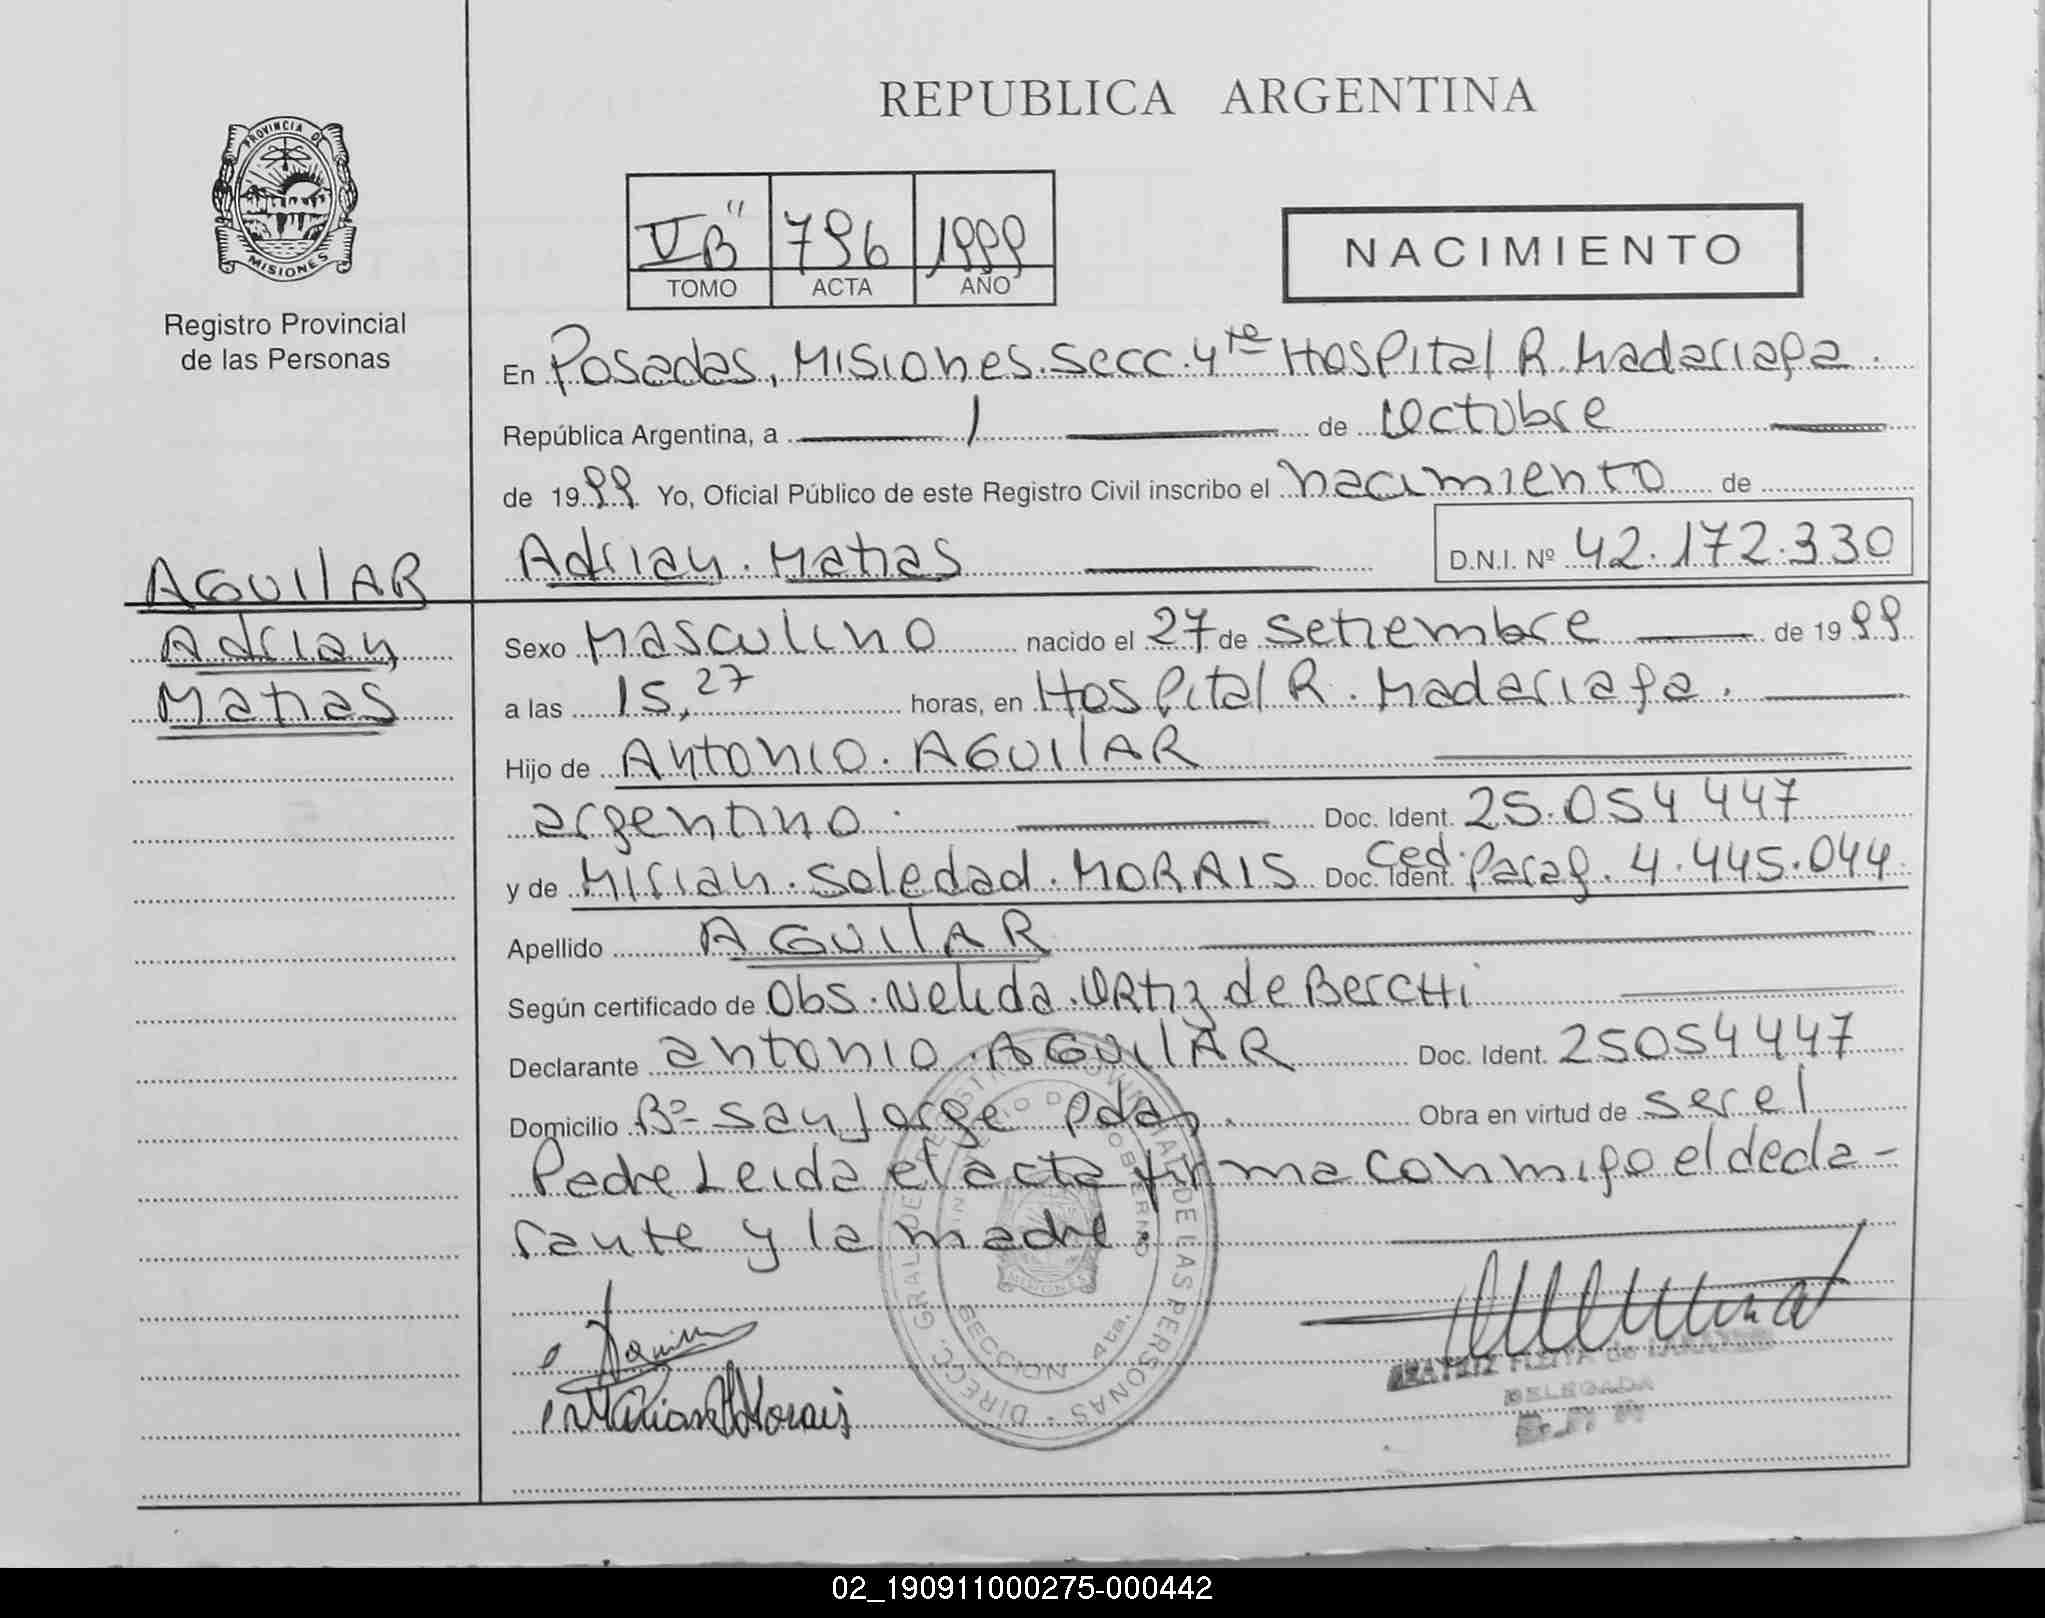 REPUBLICA ARGENTINA
PROVINCIA DE
MISIONES
Registro Provincial
de las Personas
V "B" 796 1999
TOMO ACTA AÑO
NACIMIENTO
En Posadas, Misiones. Secc. 4ta Hospital R. Madariaga.
República Argentina, a 1 de Octubre
de 1999 Yo, Oficial Público de este Registro Civil inscribo el nacimiento de
Adrian. Matias D.N.I. Nº 42.172.330
AGUILAR
Adrian
Matias
Sexo Masculino nacido el 27 de Setiembre de 1999
a las 15,27 horas, en Hospital R. Madariaga.
Hijo de Antonio. AGUILAR
argentino. Doc. Ident. 25.054 447
y de Mirian. Soledad. MORAIS Doc. Ident. Ced. Parag. 4.445.044.
Apellido AGUILAR
Según certificado de Obs. Nelida. Ortiz de Berchi
Declarante antonio. AGUILAR Doc. Ident. 25054447
Domicilio Bº San Jorge Pdas. Obra en virtud de ser el
Padre Leida el acta firma conmigo el decla-
rante y la madre
DIRECC. GRAL. DE REGISTRO PROVINCIAL DE LAS PERSONAS
MINISTERIO DE GOBIERNO
MISIONES
SECCION 4ta.
Morais
DELEGADA
02_190911000275-000442